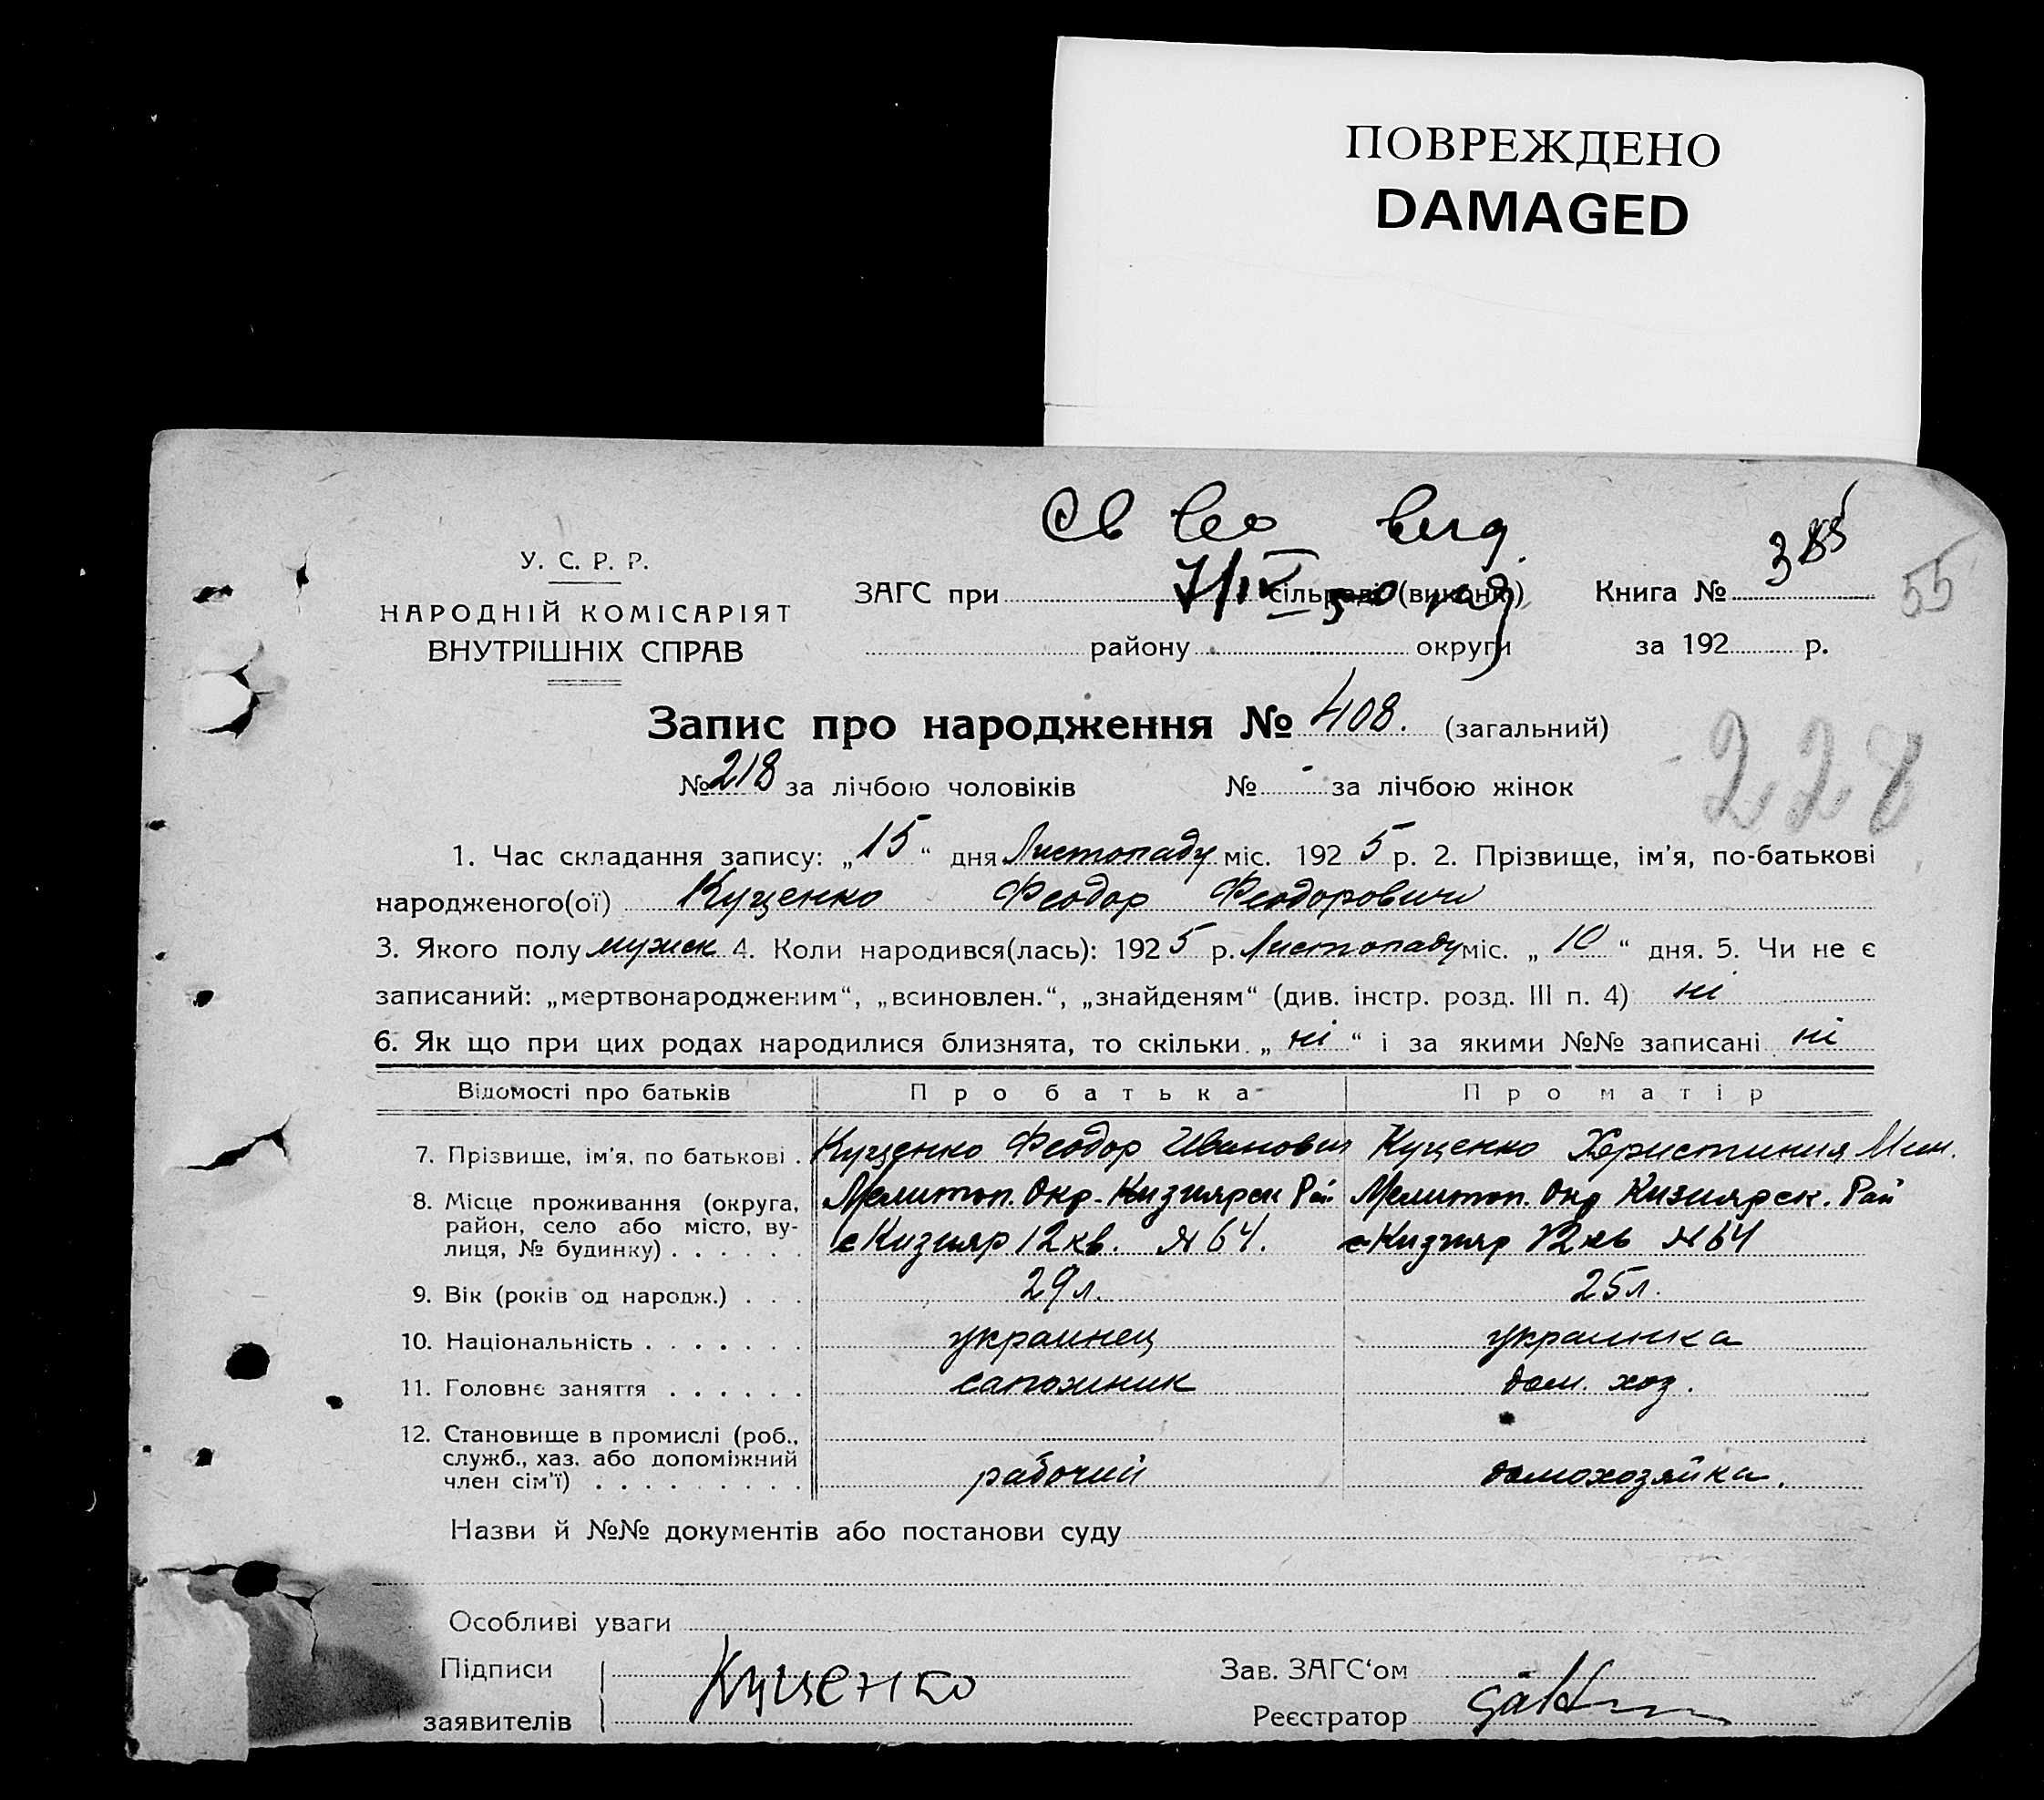 ПОВРЕЖДЕНО
DAMAGED
Св
У. С. Р. Р.
НАРОДНІЙ КОМІСАРІЯТ
ВНУТРІШНІХ СПРАВ
ЗАГС при 7/IV сільраді (виконк)
Книга № 385
55
району округи
за 192 р.
Запис про народження № 408. (загальний)
228
№ 218 за лічбою чоловіків № - за лічбою жінок
1. Час складання запису: „15“ дня Листопаду міс. 1925 р. 2. Прізвище, ім'я, по-батькові
народженого(ої) Куценко Феодор Феодорович
3. Якого полу мужск 4. Коли народився(лась): 1925 р. Листопаду міс. „10“ дня. 5. Чи не є
записаний: „мертвонародженим“, „всиновлен.“, „знайденям“ (див. інстр. розд. III п. 4) ні
6. Як що при цих родах народилися близнята, то скільки „ні“ і за якими №№ записані ні
Відомості про батьків Про батька Про матір
7. Прізвище, ім'я, по батькові . Куценко Феодор Иванович Куценко Христиния
8. Місце проживання (округа, район, село або місто, вулиця, № будинку) . . . . . . Мелитоп. Окр. Кизиярск Рай Мелитоп. Окр Кизиярск. Рай
с Кизияр 12 кв. № 64. с Кизияр 12 кв № 64
9. Вік (років од народж.) . . . 29 л. 25 л.
10. Національність . . . . . . . украинец украинка
11. Головнє заняття . . . . . . сапожник дом. хоз.
12. Становище в промислі (роб., служб., хаз. або допоміжний член сім'ї) . . . . . . . . . рабочий домохозяйка.
Назви й №№ документів або постанови суду
Особливі уваги
Підписи заявителів Куценко
Зав. ЗАГС‘ом
Реєстратор